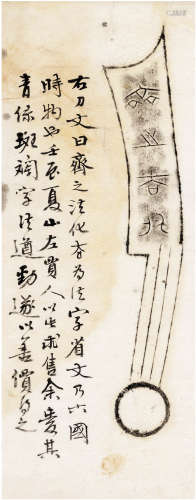 右刀文曰齊之法化夻為法字省文乃六國
時物也壬辰夏山左賈人以此求售余愛其
青綠斑斕字法遒勁遂以善價得之